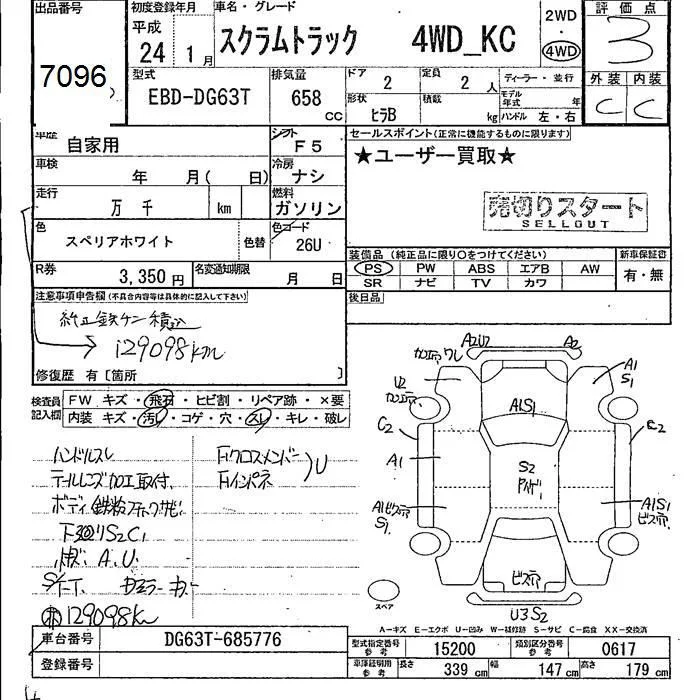 出品番号 初度登録年月 車名・グレード 2WD 評価点
平成 スクラムトラック 4WD_KC 4WD 3
24年 1月
7096 型式 排気量 ドア 2 定員 2人 ディーラー・並行 外装 内装
EBD-DG63T 658 CC 形状 ヒラB 積載 kg モデル年式 年 C C
ハンドル 左・右
車歴 自家用 シフト F5 セールスポイント(正常に機能するものに限ります)
車検 年 月( 日) 冷房 ナシ ★ユーザー買取★
走行 万 千 km 燃料 ガソリン 売切りスタート
SELLOUT
色 スペリアホワイト 色替 色コード 26U
装備品(純正品に限り○をつけてください) 新車保証書
R券 3,350円 名変通知期限 月 日 PS PW ABS エアB AW 有・無
SR ナビ TV カワ
注意事項申告欄(不具合内容等は具体的に記入して下さい) 後日品
129098km
修復歴 有〔箇所 〕
検査員記入欄 FW キズ・飛石・ヒビ割・リペア跡・×要
内装 キズ・汚レ・コゲ・穴・スレ・キレ・破レ
ハンドルスレ Fクロスメンバー
テールレンズ加工取付 Fインパネ U
ボディ鉄粉
下廻りS2C1
A.U.
129098km
A2U2 A2
U2 A1
S1
C2 A1S1
A1 S2
A1ビス穴 A1S1
S1 ビス穴
ビス穴
スペア U3S2
A−キズ E−エクボ U−凹み W−補修跡 S−サビ C−腐食 XX−交換済
車台番号 DG63T-685776 型式指定番号 参考 15200 類別区分番号 参考 0617
登録番号 車庫証明用 参考 長さ 339cm 幅 147cm 高さ 179cm